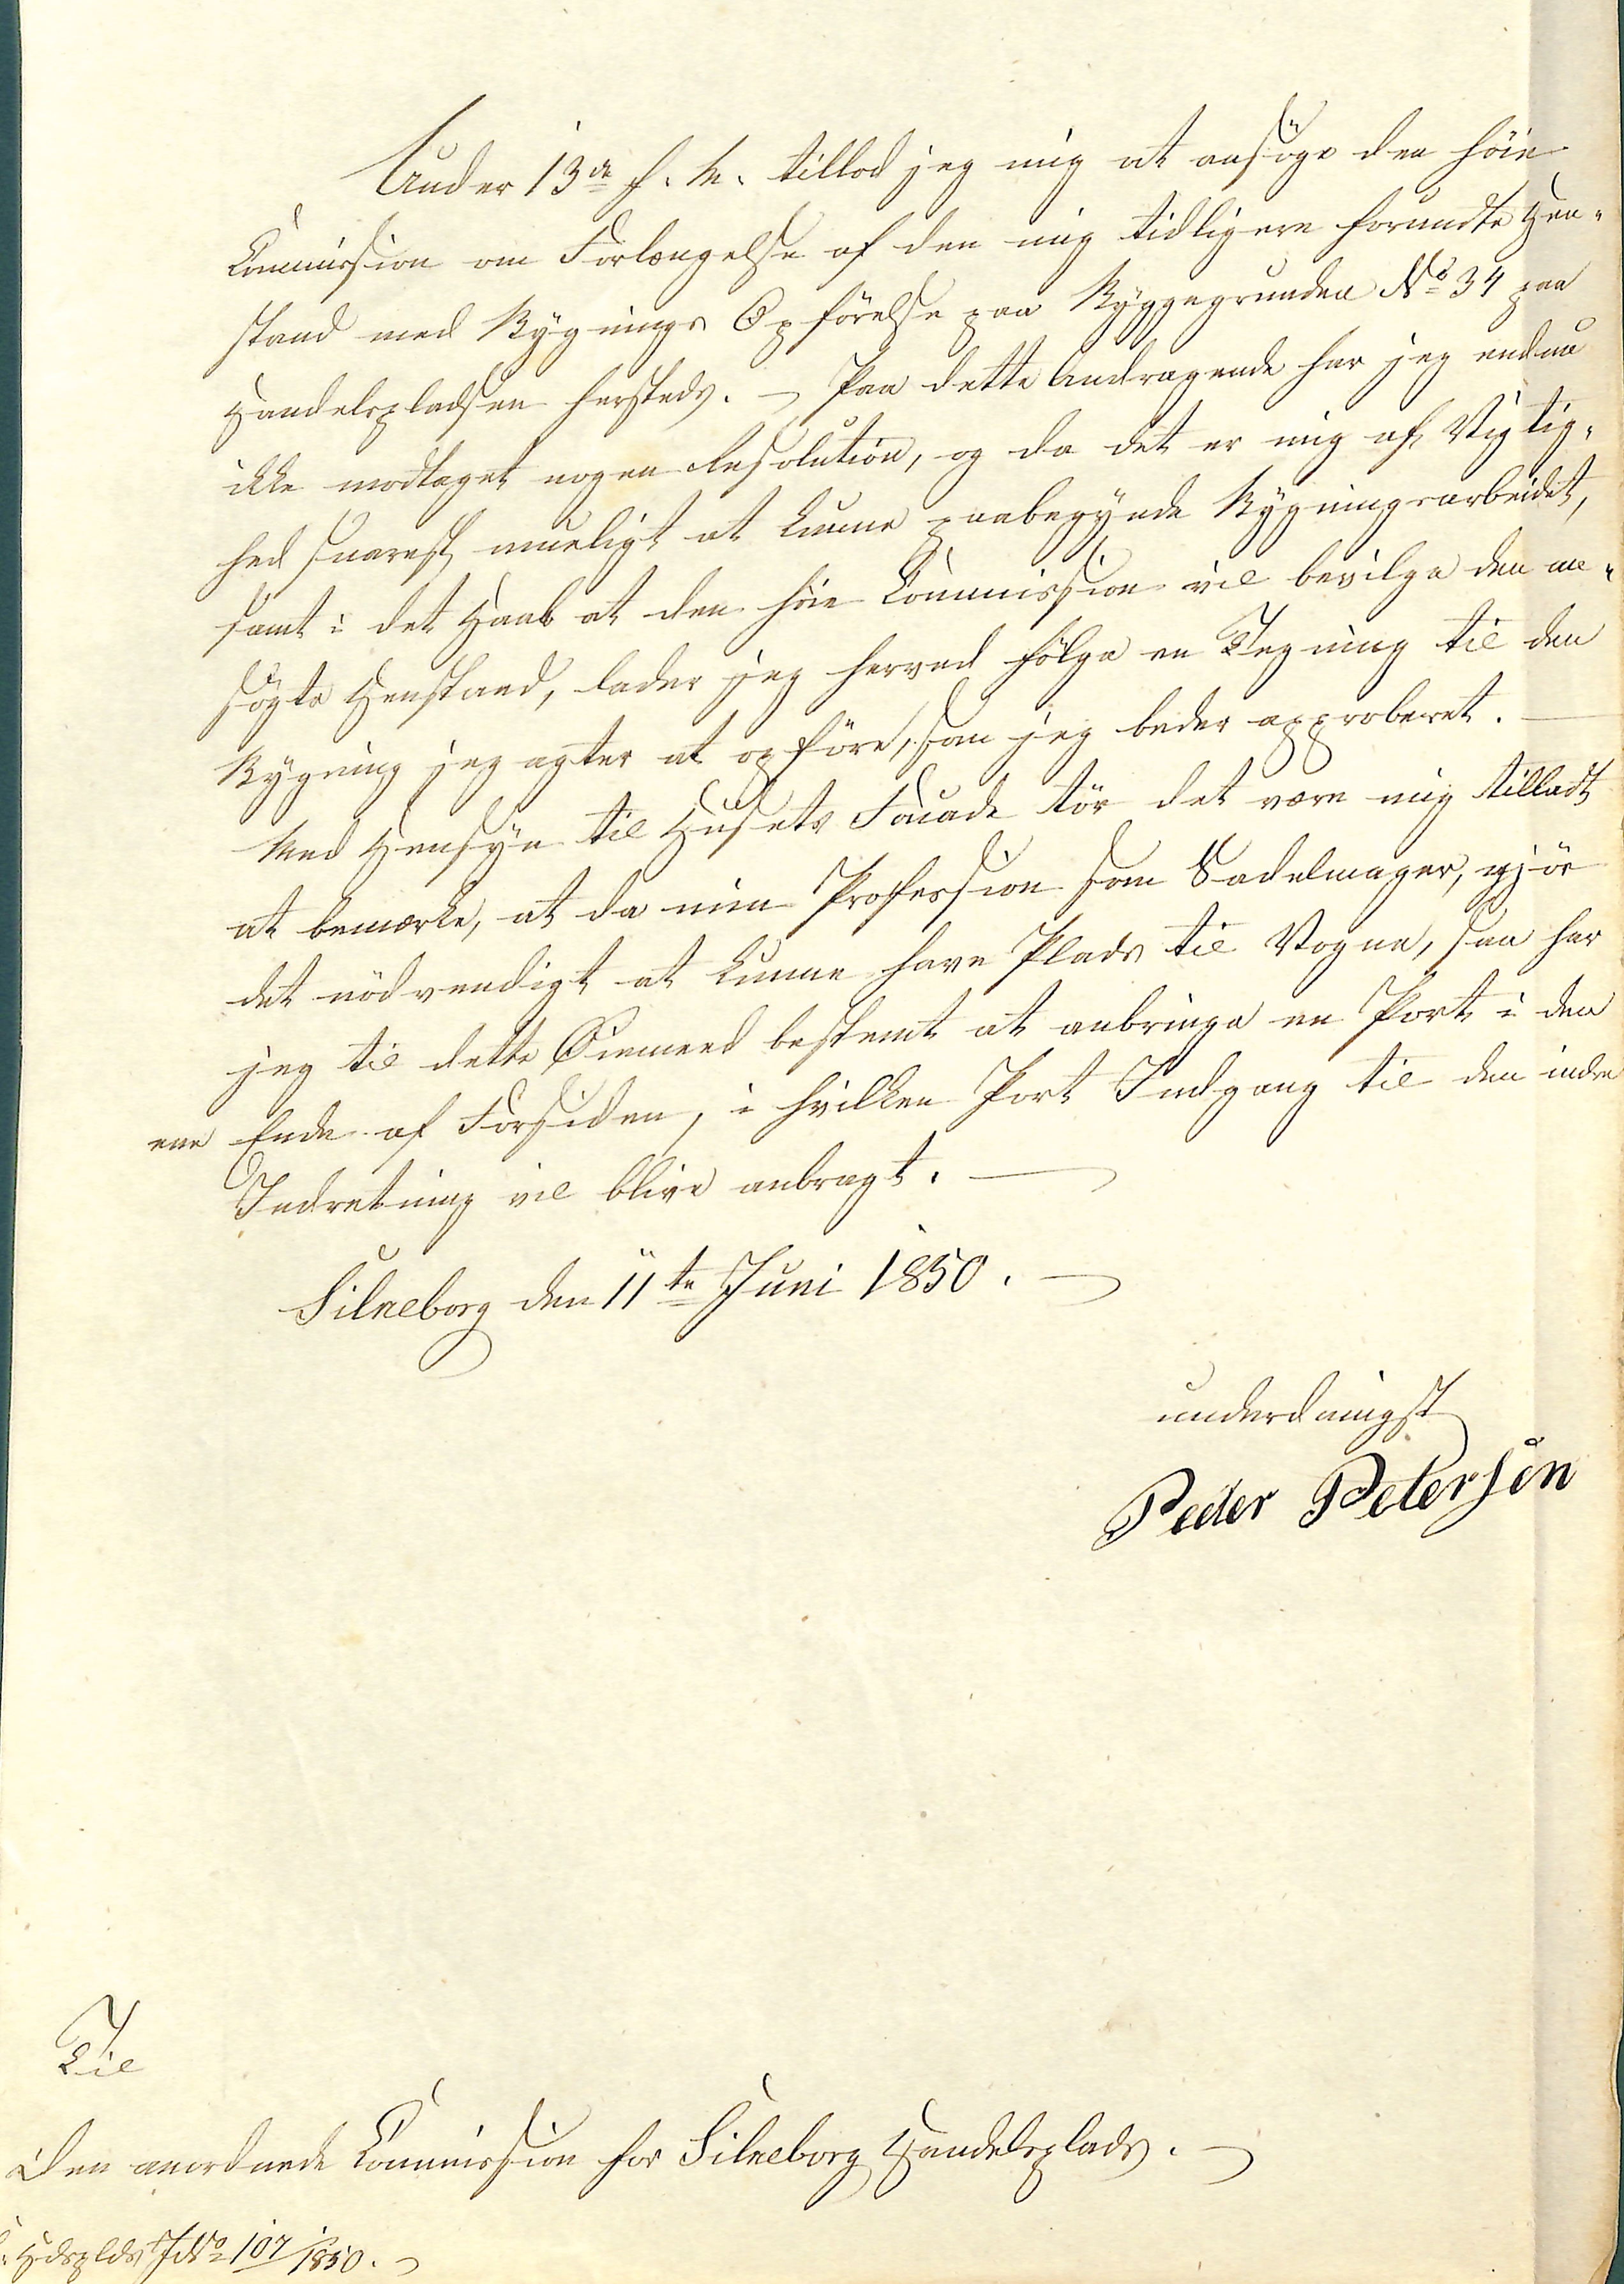 Under 13de f. M. tillod jeg mig at ansöge den höie
Commission om Forlængelse af den mig tidligere forundte Hen-
stand med Bygnings Opförelse paa Byggegrunden No 34 paa
Handelspladsen hersteds. – Paa dette Andragende har jeg endnu
ikke modtaget nogen Resolution, og da det er mig af Vigtig-
hed snarest mueligt at kunne paabegynde Bygningsarbeidet,
samt i det Haab at den höie Commission vil bevilge den an-
sögte Henstand, lader jeg herved fölge en Tegning til den
Bygning jeg agter at opföre, som jeg beder approberet. —
Med Hensyn til Husets Facade tör det være mig tilladt
at bemærke, at da min Profession som Sadelmager, gjör
det nödvendigt at kunne have Plads til Vogne, saa har
jeg til dette Öiemeed bestemt at anbringe en Port i den
ene Ende af Forsiden, i hvilken Port Indgang til den indre
Indretning vil blive anbragt. —
Silkeborg den 11te Juni 1850. —
underdanigst
Peder Petersen
Til
Den anordnede Commission for Silkeborg Handelsplads. —
Hdsplds J No 107/1850. —